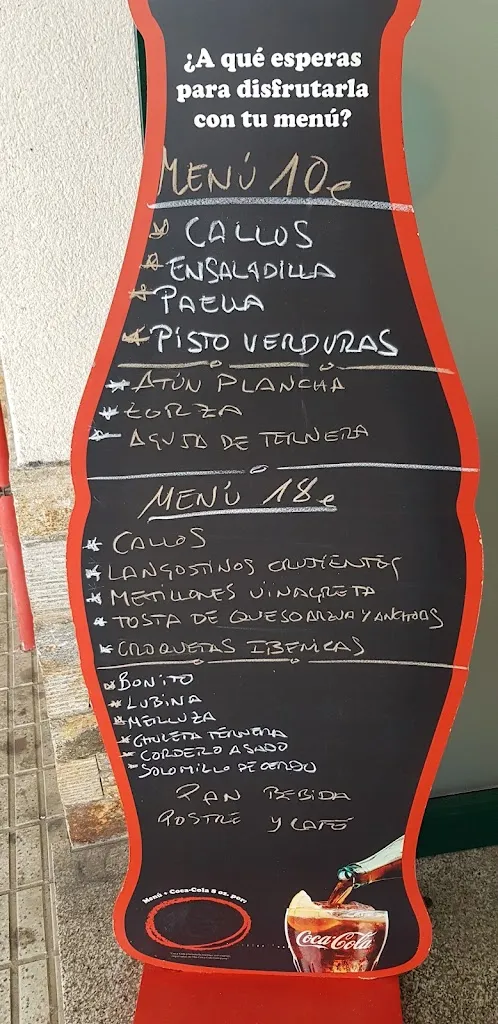 ¿A qué esperas
para disfrutarla
con tu menú?
MENÚ 10e
* CALLOS
* ENSALADILLA
* PAELLA
* PISTO VERDURAS
* ATÚN PLANCHA
* ZORZA
* AGUJA DE TERNERA
MENÚ 18e
* CALLOS
* LANGOSTINOS CRUJIENTES
* MEJILLONES VINAGRETA
* TOSTA DE QUESO ARZUA Y ANCHOAS
* CROQUETAS IBERICAS
* BONITO
* LUBINA
* MERLUZA
* CHULETA TERNERA
* CORDERO ASADO
* SOLOMILLO DE CERDO
PAN BEBIDA
POSTRE Y CAFÉ
Menú + Coca-Cola 8 oz. por:
Coca-Cola